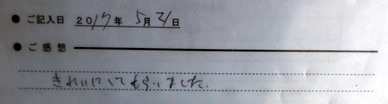 ● ご記入日 2017年 5月21日
● ご感想
きれいにしてもらいました。